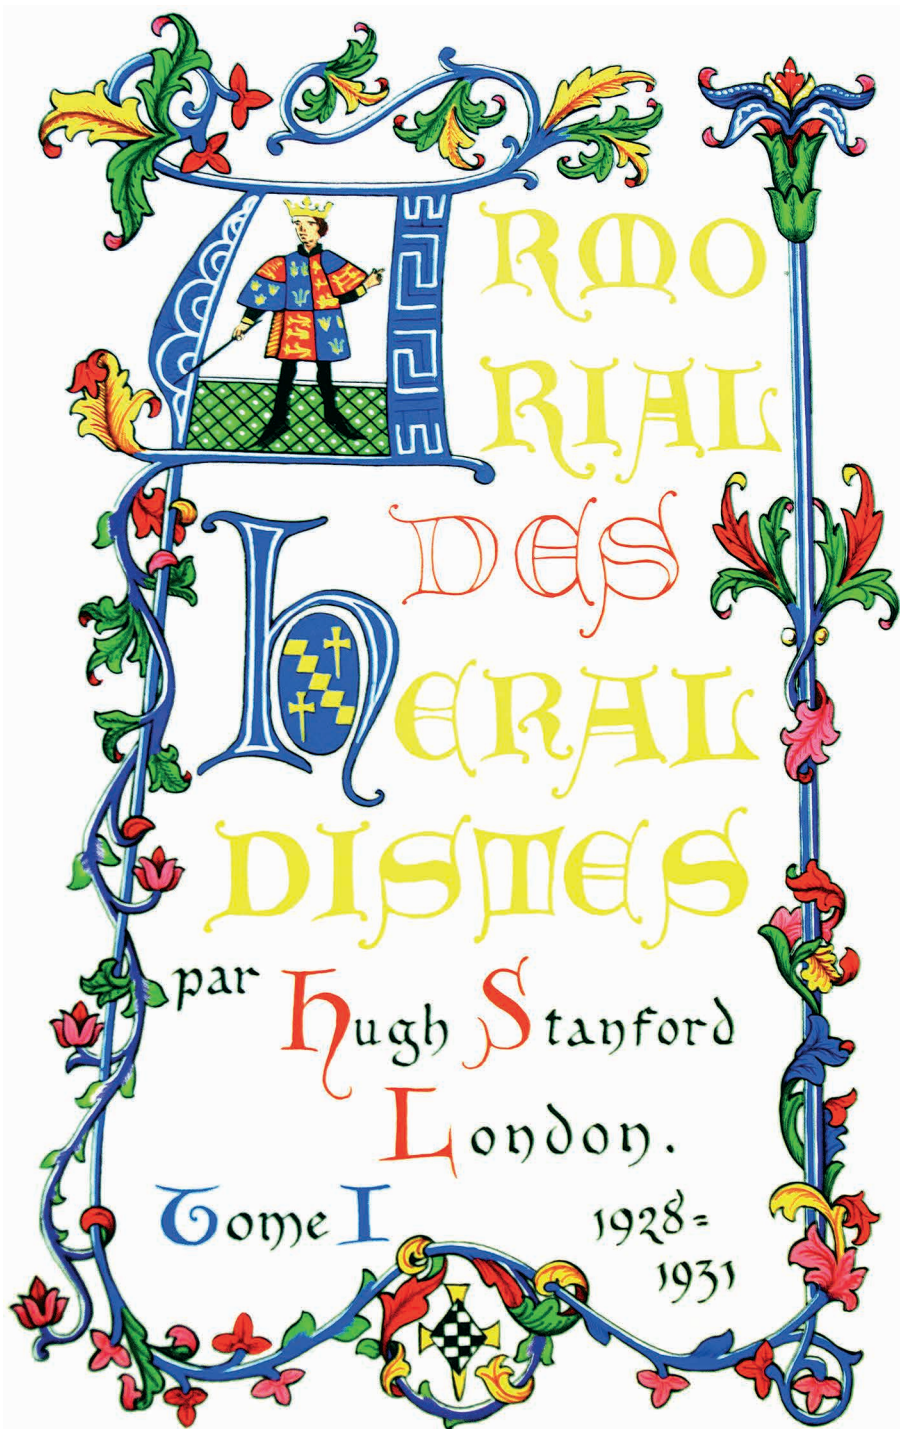 ARMO
RIAL
DES
HERAL
DISTES
par Hugh Stanford
London.
Tome I 1928=
1931